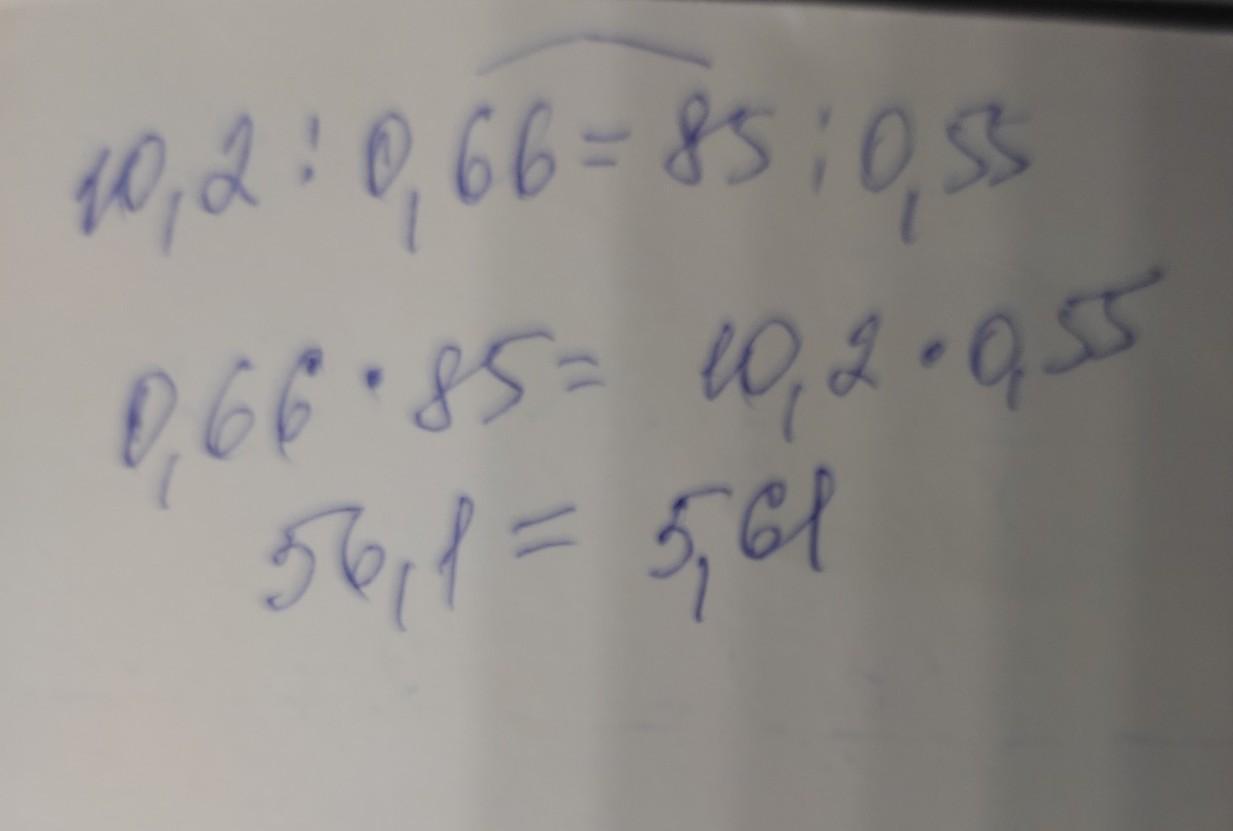 10,2 : 0,66 = 85 : 0,55
0,66 · 85 = 10,2 · 0,55
56,1 = 5,61